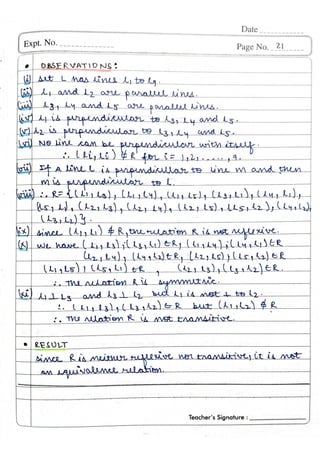 Date
Expt. No.
Page No. 21
• OBSERVATIONS:
(i) Set L has lines l1 to l9.
(ii) l1 and l2 are parallel lines.
(iii) l3, l4 and l5 are parallel lines.
(iv) l1 is perpendicular to l3, l4 and l5.
(v) l2 is perpendicular to l3, l4 and l5.
(vi) No line can be perpendicular with itself.
∴ (li, li) ∉ R for i = 1, 2, ...., 9.
(vii) If a line L is perpendicular to line m and then
m is perpendicular to L.
(viii) ∴ R = { (l1, l3), (l1, l4), (l1, l5), (l3, l1), (l4, l1),
(l5, l1), (l2, l3), (l2, l4), (l2, l5), (l5, l2), (l4, l2),
(l3, l2) }.
(ix) Since (l1, l1) ∉ R, the relation R is not reflexive.
(x) we have (l1, l3), (l3, l1) ∈ R, (l1, l4), (l4, l1) ∈ R
(l2, l4), (l4, l2) ∈ R, (l2, l5), (l5, l2) ∈ R
(l1, l5), (l5, l1) ∈ R, (l2, l3), (l3, l2) ∈ R.
∴ The relation R is symmetric.
(xi) l1 ⊥ l3 and l3 ⊥ l2 but l1 is not ⊥ to l2.
∴ (l1, l3), (l3, l2) ∈ R but (l1, l2) ∉ R
∴ The relation R is not transitive.
• RESULT
Since R is neither reflexive nor transitive, it is not
an equivalence relation.
Teacher's Signature :